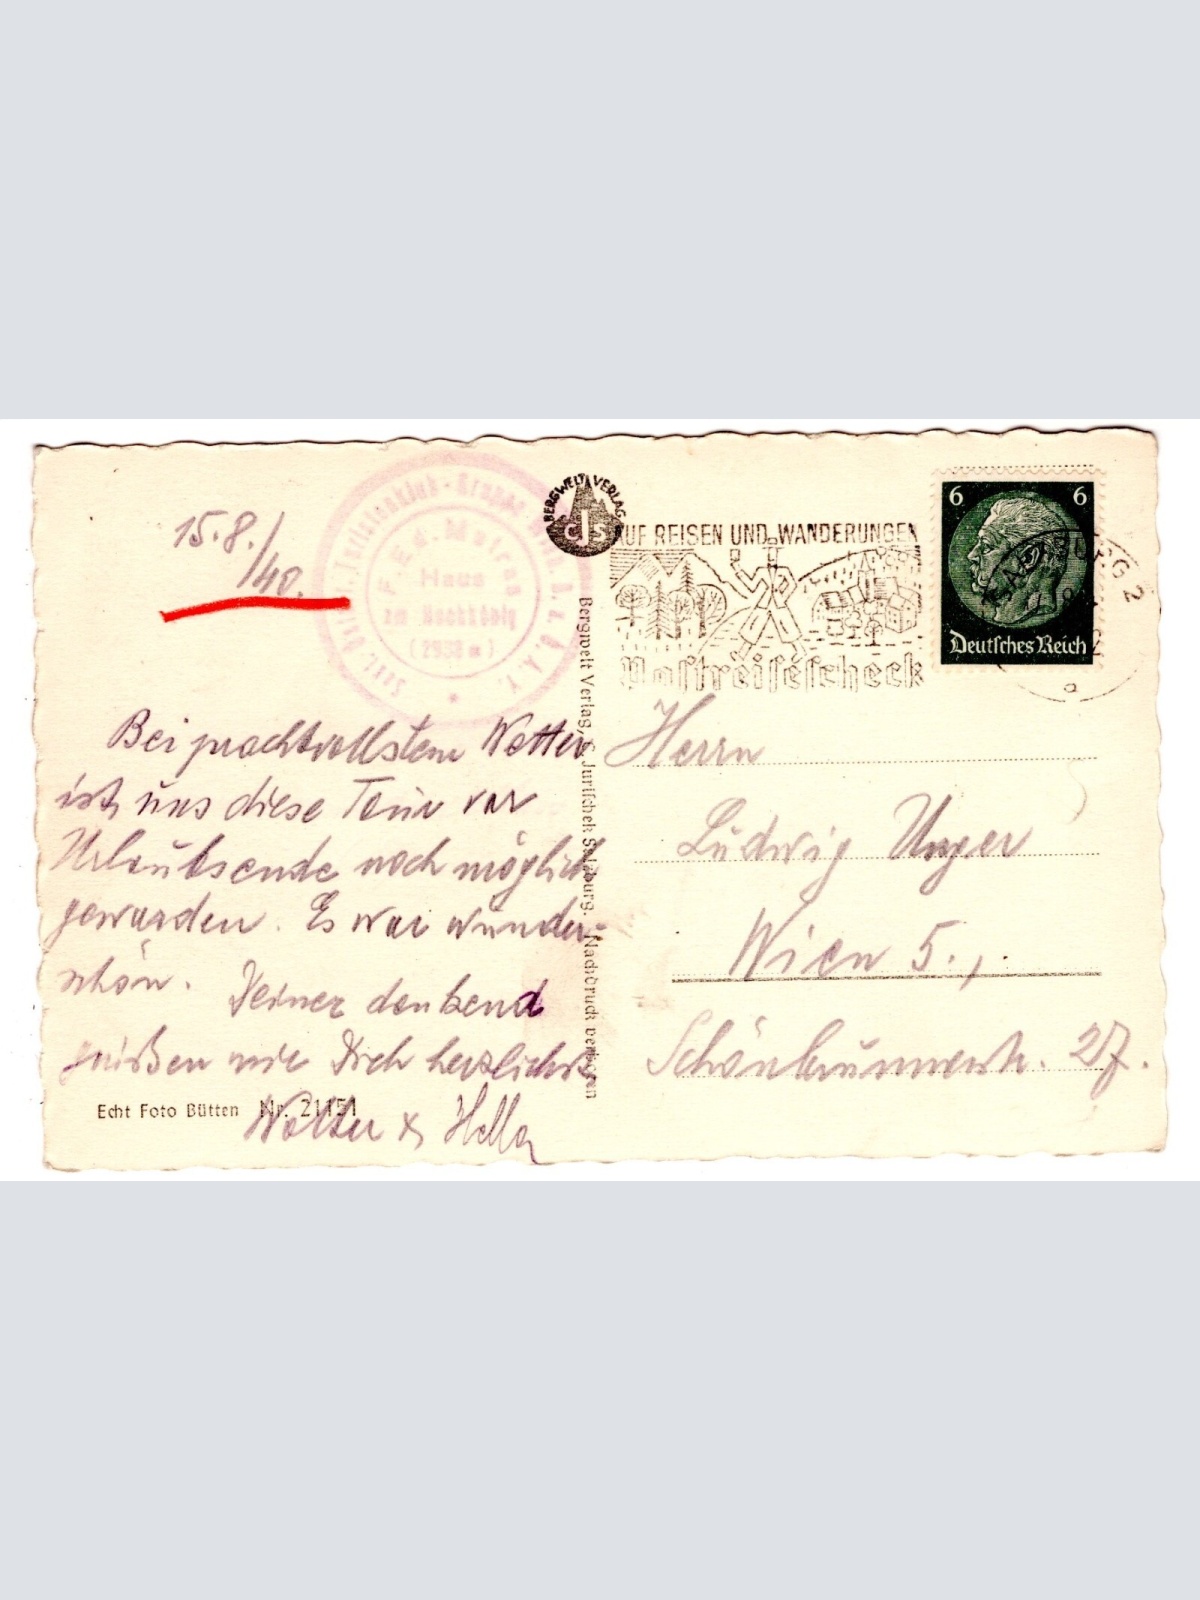 15.8./
/40.
F. Ed. Matras
Haus
am Hochkönig
(2938 m)
Bei prachtvollstem Wetter
ist uns diese Tour vor
Urlaubsende noch möglich
geworden. Es war wunder-
schön. Deiner denkend
grüßen wir Dich herzlichst
Walter & Hella
Echt Foto Bütten Nr. 21151
BERGWELT VERLAG
CJS
Bergwelt Verlag, C. Jurischek Salzburg. Nachdruck verboten
AUF REISEN UND WANDERUNGEN
Postreisescheck
6 6
Deutsches Reich
SALZBURG 2
a
Herrn
Ludwig Unger
Wien 5.,
Schönbrunnerstr. 27.